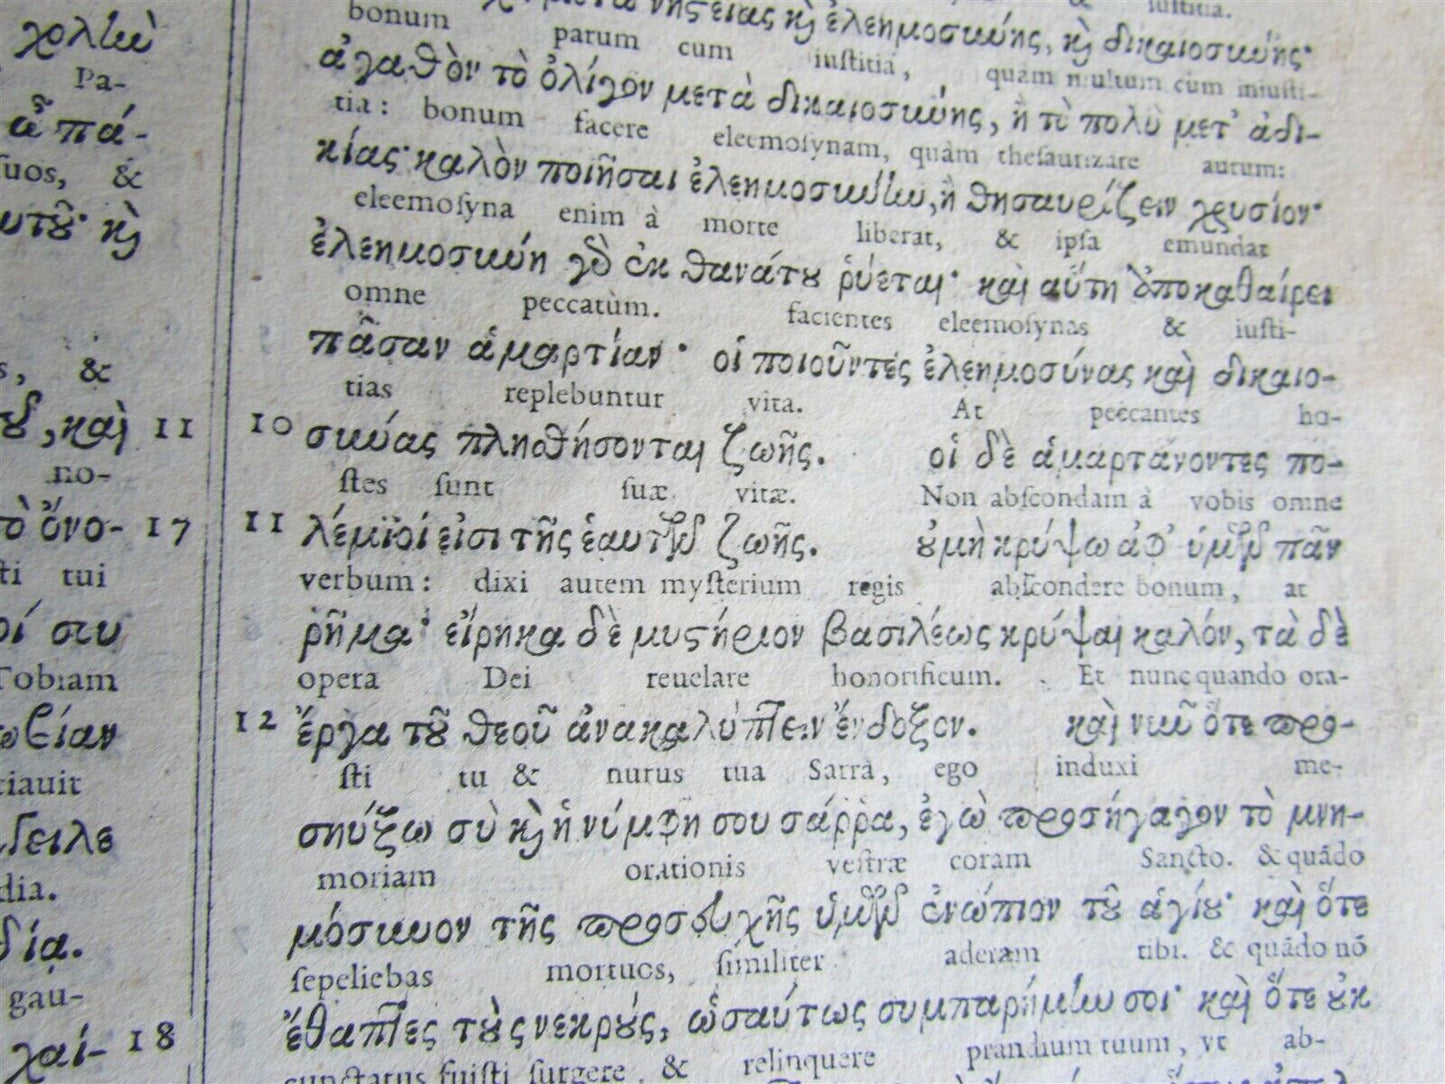 χολίω
Pa-
ἃ πά-
suos, &
αυτοῦ· καὶ
s, &
ου, καὶ 11
no-
τὸ ὄνο- 17
ti tui
οί σου
Tobiam
ωβίαν
tiauit
δειλε
dia.
δία.
gau-
χαί- 18
iustitia.
νηστείας καὶ ἐλεημοσύνης, καὶ δικαιοσύνης·
bonum parum cum iustitia, quàm multum cum iniusti-
ἀγαθὸν τὸ ὀλίγον μετὰ δικαιοσύνης, ἢ τὸ πολὺ μετ' ἀδι-
tia: bonum facere eleemosynam, quàm thesaurizare aurum:
κίας· καλὸν ποιῆσαι ἐλεημοσύνην, ἢ θησαυρίζειν χρυσίον·
eleemosyna enim à morte liberat, & ipsa emundat
ἐλεημοσύνη γὰρ ἐκ θανάτου ῥύεται· καὶ αὕτη ἀποκαθαίρει
omne peccatùm. facientes eleemosynas & iusti-
πᾶσαν ἁμαρτίαν· οἱ ποιοῦντες ἐλεημοσύνας καὶ δικαιο-
tias replebuntur vita. At peccantes ho-
10 σύνας πλησθήσονται ζωῆς. οἱ δὲ ἁμαρτάνοντες πο-
stes sunt suæ vitæ. Non abscondam à vobis omne
11 λέμιοί εἰσι τῆς ἑαυτῶν ζωῆς. οὐ μὴ κρύψω ἀφ' ὑμῶν πᾶν
verbum: dixi autem mysterium regis abscondere bonum, at
ῥῆμα· εἴρηκα δὲ μυστήριον βασιλέως κρύψαι καλόν, τὰ δὲ
opera Dei reuelare honorificum. Et nunc quando ora-
12 ἔργα τοῦ θεοῦ ἀνακαλύπτειν ἔνδοξον. καὶ νῦν ὅτε προσ-
sti tu & nurus tua Sarra, ego induxi me-
σηύξω σὺ καὶ ἡ νύμφη σου σάρρα, ἐγὼ προσήγαγον τὸ μνη-
moriam orationis vestræ coram Sancto. & quādo
μόσυνον τῆς προσευχῆς ὑμῶν ἐνώπιον τοῦ ἁγίου· καὶ ὅτε
sepeliebas mortuos, similiter aderam tibi. & quādo nō
ἔθαπτες τοὺς νεκρούς, ὡσαύτως συμπαρήμην σοι· καὶ ὅτε οὐκ
cunctatus fuisti surgere & relinquere prandium tuum, vt ab-